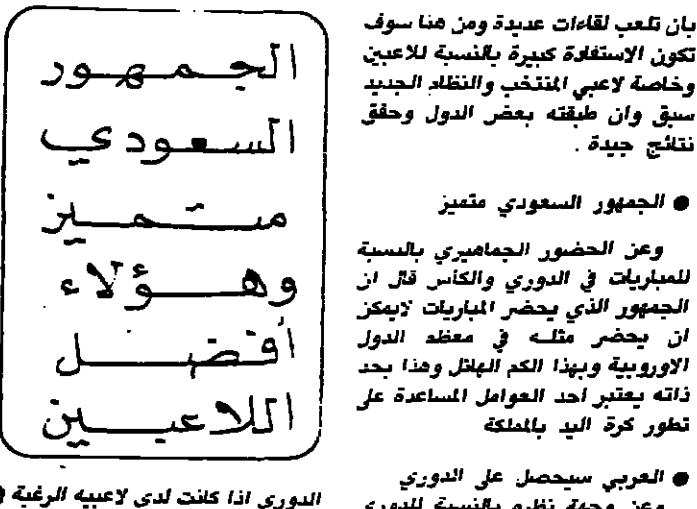 بان تلعب لقاءات عديدة ومن هنا سوف
تكون الاستفادة كبيرة بالنسبة للاعبين
وخاصة لاعبي المنتخب والنظام الجديد
سبق وان طبقته بعض الدول وحقق
نتائج جيدة .
● الجمهور السعودي متميز
وعن الحضور الجماهيري بالنسبة
للمباريات في الدوري والكأس قال ان
الجمهور الذي يحضر المباريات لايمكن
ان يحضر مثله في معظم الدول
الاوروبية وبهذا الكم الهائل وهذا بحد
ذاته يعتبر احد العوامل المساعدة على
تطور كرة اليد بالمملكة
● العربي سيحصل على الدوري
وعن وجهة نظره بالنسبة للدوري
الجمهور
السعودي
متميز
وهؤلاء
أفضل
اللاعبين
الدوري اذا كانت لدى لاعبيه الرغبة